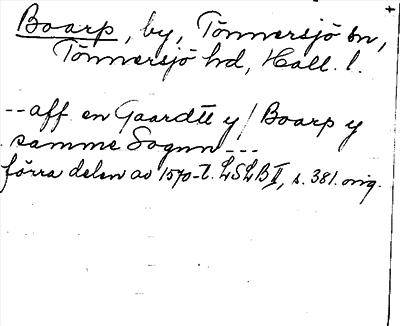 Boarp, by, Tönnersjö sn,
Tönnersjö hd, Hall. l.
-- aff en Gaardtt y / Boarp y
samme Sognn ---
förra delen av 1570-t. LSLB II, s. 381. orig.